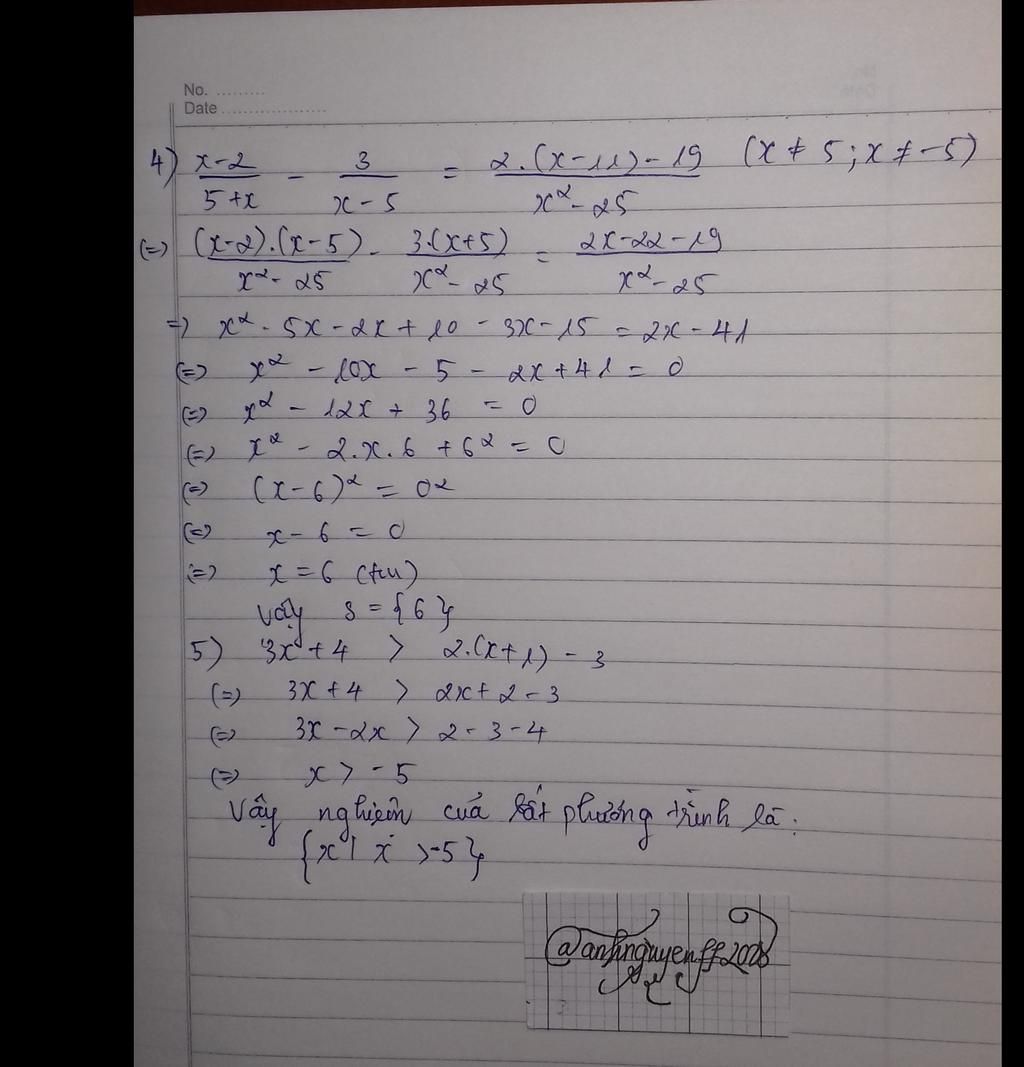 No. .........
Date ...................
4) (x-2)/(5+x) - 3/(x-5) = (2.(x-11)-19)/(x²-25) (x ≠ 5 ; x ≠ -5)
(=) ((x-2).(x-5))/(x²-25) - (3.(x+5))/(x²-25) = (2x-22-19)/(x²-25)
=) x² - 5x - 2x + 10 - 3x - 15 = 2x - 41
(=) x² - 10x - 5 - 2x + 41 = 0
(=) x² - 12x + 36 = 0
(=) x² - 2.x.6 + 6² = 0
(=) (x-6)² = 0²
(=) x - 6 = 0
(=) x = 6 (tm)
Vậy S = {6}
5) 3x + 4 > 2.(x+1) - 3
(=) 3x + 4 > 2x + 2 - 3
(=) 3x - 2x > 2 - 3 - 4
(=) x > -5
Vậy nghiệm của bất phương trình là:
{x | x > -5}
@anhnguyenff2008